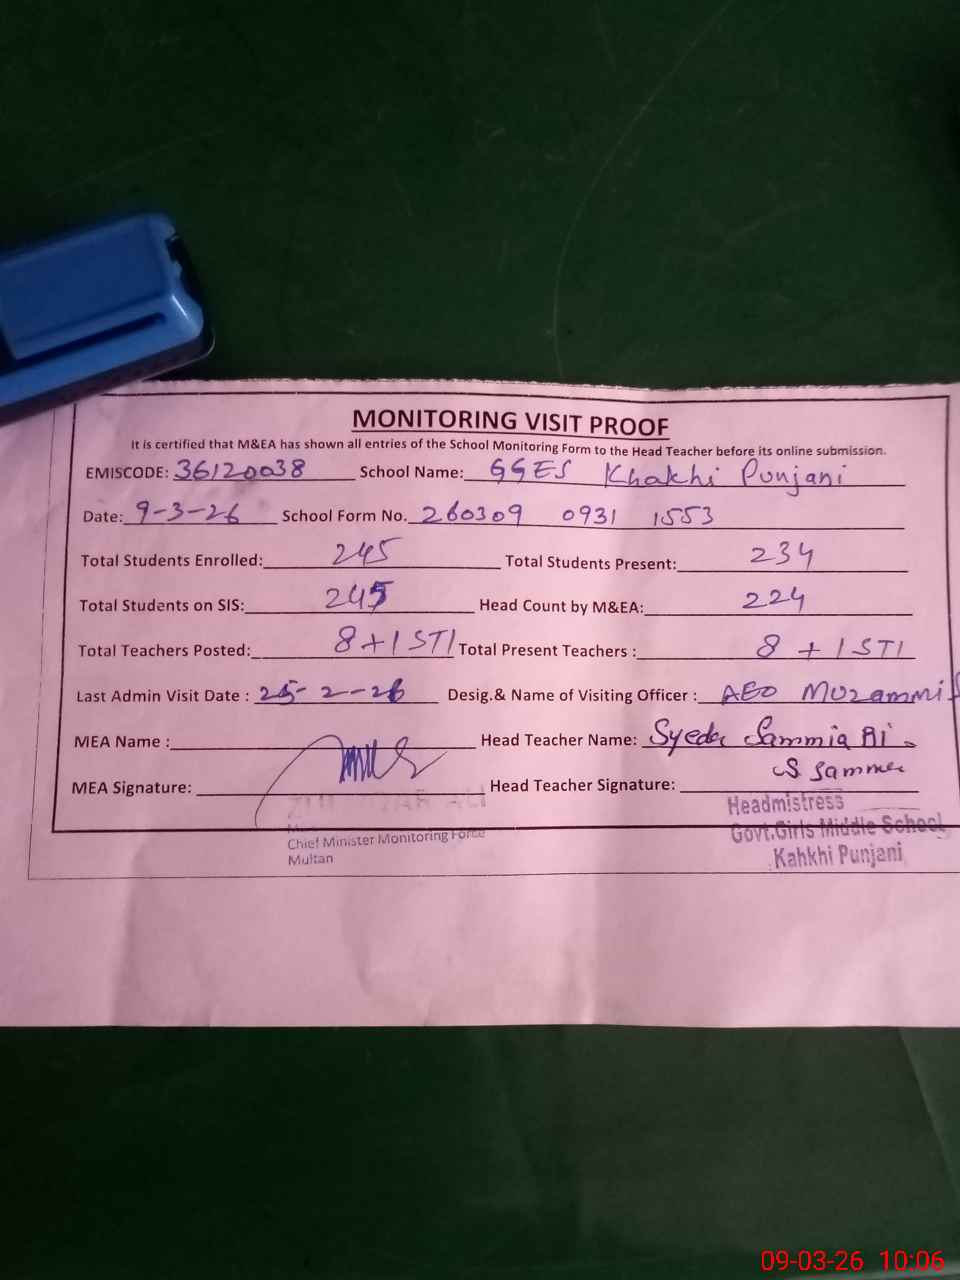 MONITORING VISIT PROOF
It is certified that M&EA has shown all entries of the School Monitoring Form to the Head Teacher before its online submission.
EMISCODE: 36120038 School Name: GGES Khakhi Punjani
Date: 9-3-26 School Form No. 260309 0931 1553
Total Students Enrolled: 245 Total Students Present: 234
Total Students on SIS: 245 Head Count by M&EA: 224
Total Teachers Posted: 8+1 STI Total Present Teachers : 8 + 1 STI
Last Admin Visit Date : 25-2-26 Desig.& Name of Visiting Officer : AEO Muzammil
MEA Name : Head Teacher Name: Syeda Sammia Bi
MEA Signature: Head Teacher Signature:
Headmistress
Chief Minister Monitoring Force Govt.Girls Middle School
Multan Kahkhi Punjani
09-03-26 10:06